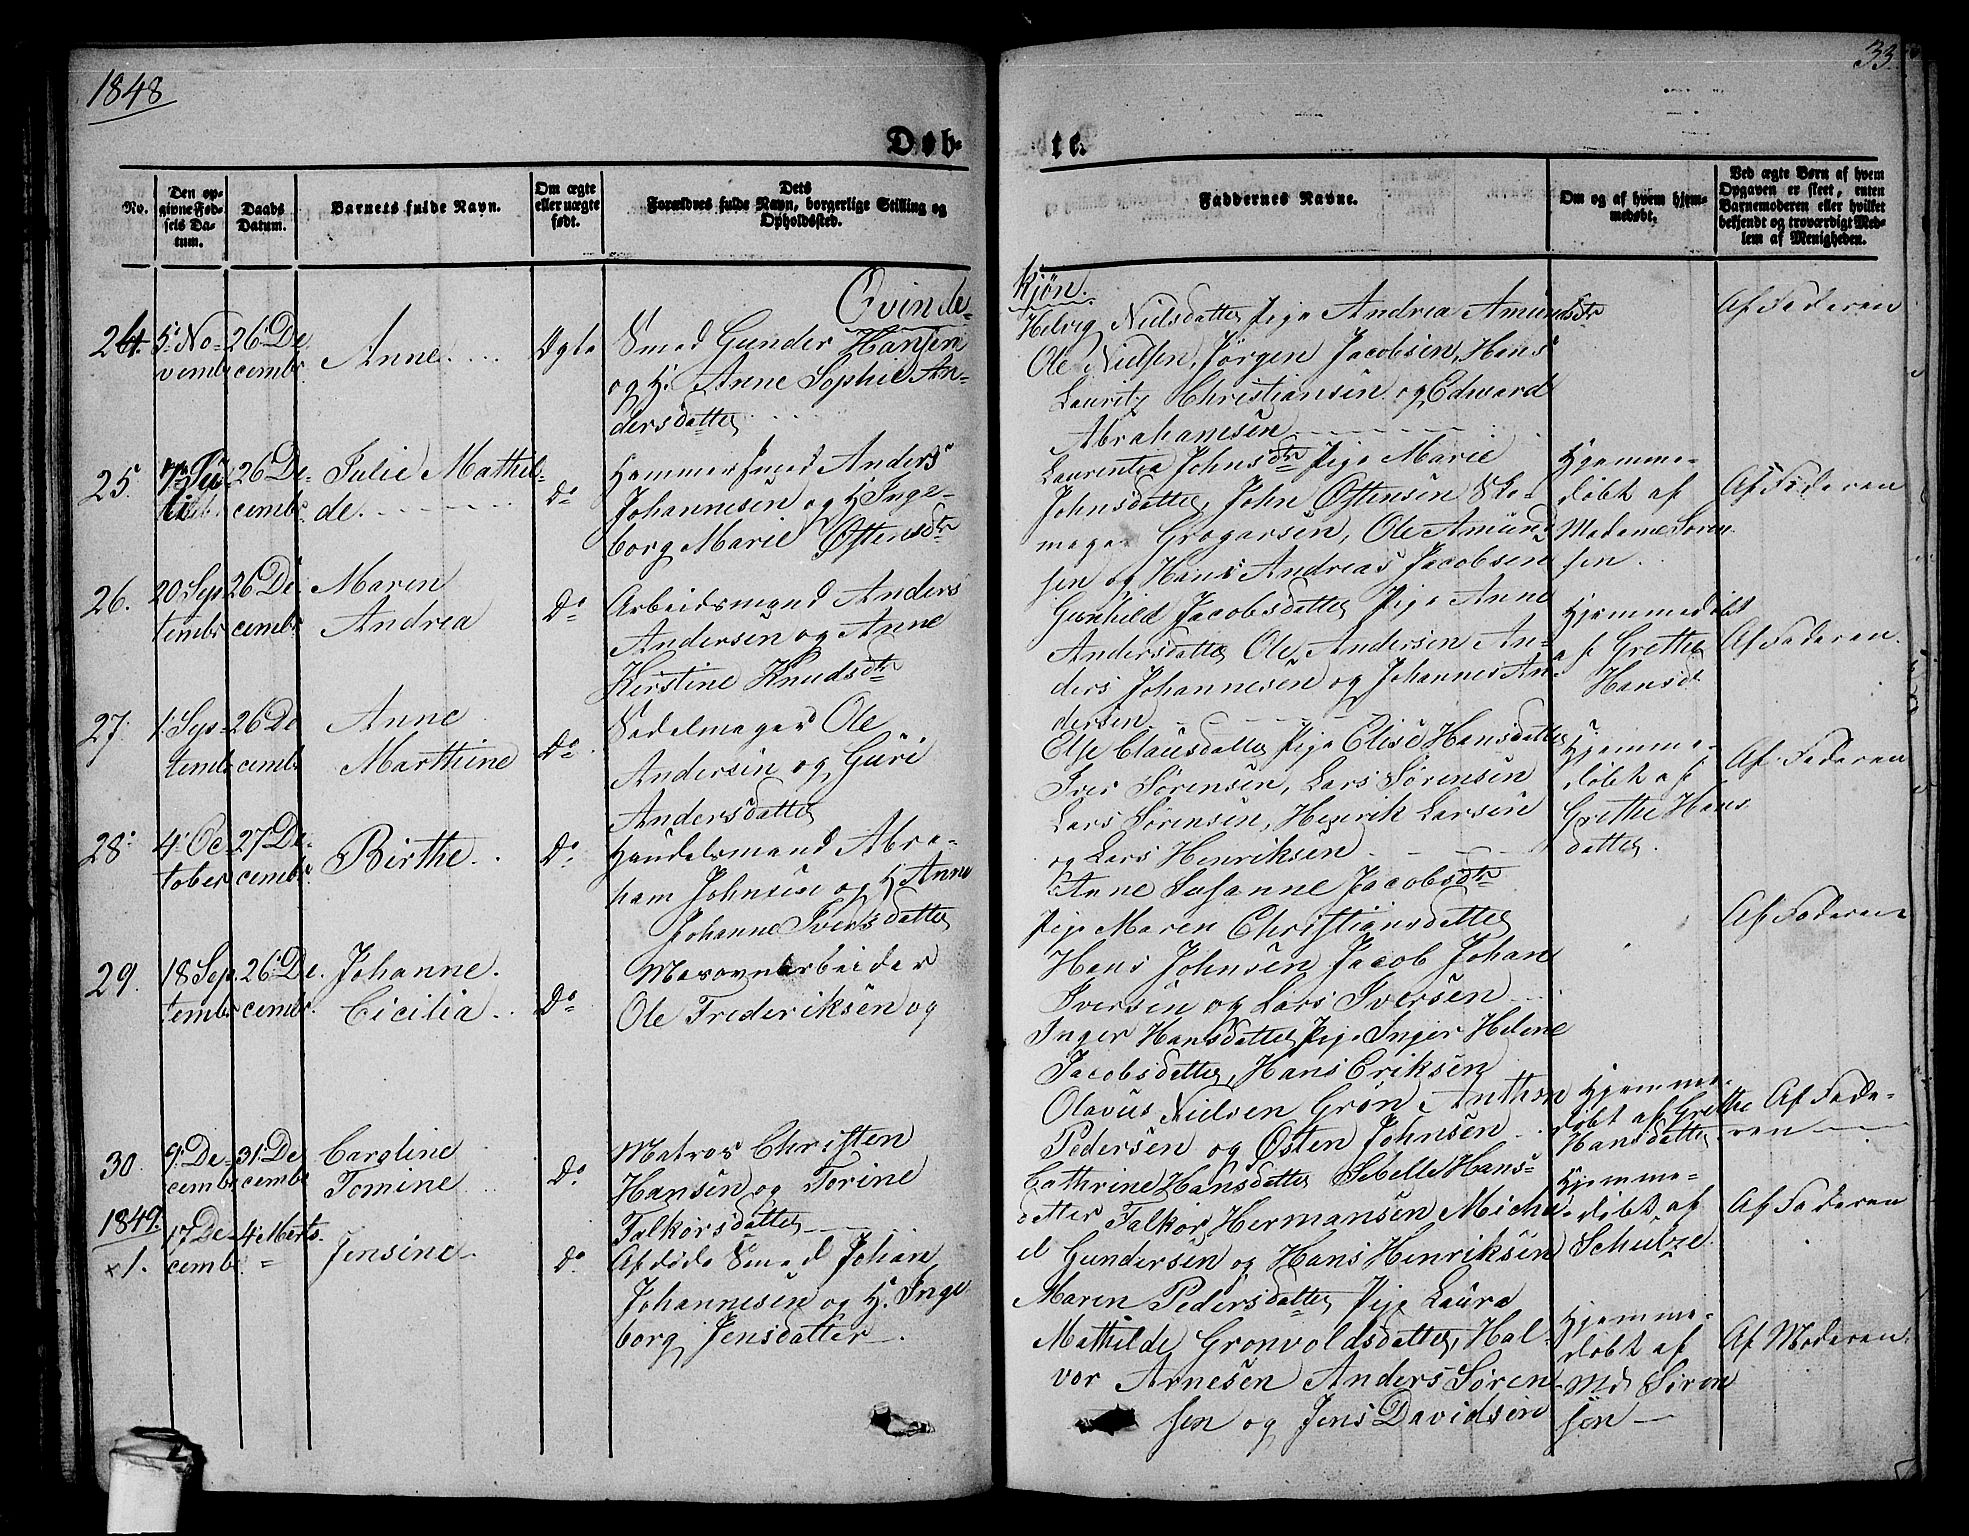 1848
33
Døb-
te.
No.
Den op-
givne Fød-
sels Da-
tum.
Daabs
Datum.
Barnets fulde Navn.
Om ægte
eller uægte
født.
Dets
Forældres fulde Navn, borgerlige Stilling og
Opholdssted.
Faddernes Navne.
Om og af hvem hjem-
medøbt.
Ved ægte Børn af hvem
Opgaven er skeet, enten
Barnemoderen eller hvilket
bekjendt og troværdigt Med-
lem af Menigheden.
Qvinde-
Kjøn.
24. 5' No- 26 De Anne. Ægte Smed Gunder Hansen
vembr cembr og H. Anne Sophie An-
dersdatter
Helvig Nielsdatter Pige Andrea Amundsdtr
Ole Nielsen, Jørgen Jacobsen, Hans
Lauritz Christiansen og Edward
Abrahamsen
Af Faderen
25. 26 De- Julie Mathil- Do Hammersmed Anders
cembr. de. Johannesen og H. Inge-
borg Marie Østensdtr
Laurentia Johnsdtr Pige Marie
Johnsdatter, John Østensen Sko-
mager Gregarsen, Ole Amund
sen og Hans Andreas Jacobsen
Hjemme-
døbt af
Madame Soren
sen.
Af Faderen
26. 20 Sep 26 De Maren Do Arbeidsmand Anders
tembr cembr Andrea Andersen og Anne
Kerstine Knudsdtr
Gunhild Jacobsdatter Pige Anne
Andersdatter Ole Andersen An-
ders Johannesen og Johannes An-
dersen
Hjemmedøbt
af Grethe
Hansd
Af Faderen.
27. 1. Sep- 26 De Anne Do. Sadelmager Ole
tembr cembr Marthine Andersen og Guri
Andersdatter
Else Clausdatter Pige Elise Hansdatter
Iver Sørensen, Lars Sørensen
Lars Sørensen, Henrik Larsen
og Lars Henriksen
Hjemme-
døbt af
Grethe Hans
datter.
Af Faderen
28. 4' Oc 27 De- Birthe. Do. Handelsmand Abra-
tober cembr. ham Johnsen og H Anne
Johanne Iversdatter
Anne Susanne Jacobsdtr
Pige Maren Christiansdatter
Hans Johnsen Jacob Johan
Iversen og Lars Iversen
Af Faderen
29. 18 Sep. 26 De. Johanne. Do Masovnarbeider
tembr cembr. Cicilia. Ole Frederiksen og
Inger Hansdatter Pige Inger Helene
Jacobsdatter, Hans Eriksen
Olavus Nielsen Grøn Anthon
Pedersen og Østen Johnsen
Hjemme-
døbt af Grethe
Hansdatter
Af Fade-
ren
30. 9' De- 31 De Caroline Do. Matros Christen
cembr cembr Tomine Hansen og Torine
Falkorsdatter
Cathrine Hansdatter Sebelle Hans-
datter Falkor Hermansen Micha
el Gundersen og Hans Henriksen
Hjemme-
døbt af
Schulze.
Af Faderen
1849.
×1. 17 De- 4 Merts. Jensine Do Afdøde Smed Johan
cembr. Johannesen og H. Inge
borg Jensdatter.
Maren Pedersdatter Pige Laura
Mathilde Gronvoldsdatter, Hal-
vor Arnesen Anders Søren-
sen og Jens Davidsen
Hjemme-
døbt af
Md Søren
sen
Af Moderen.